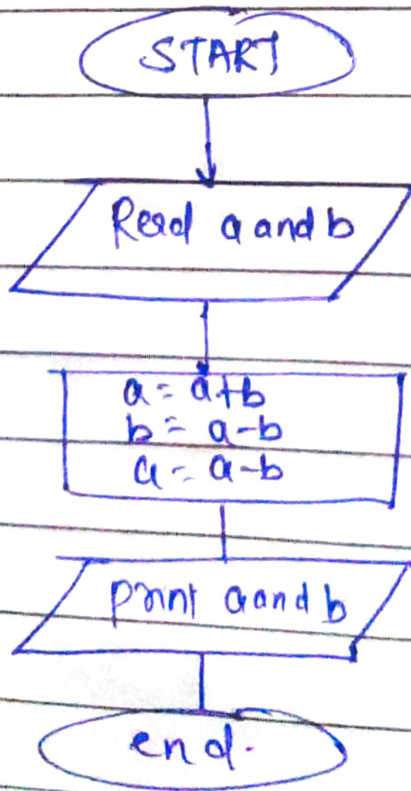 START
Read a and b
a = a+b
b = a-b
a = a-b
print a and b
end.